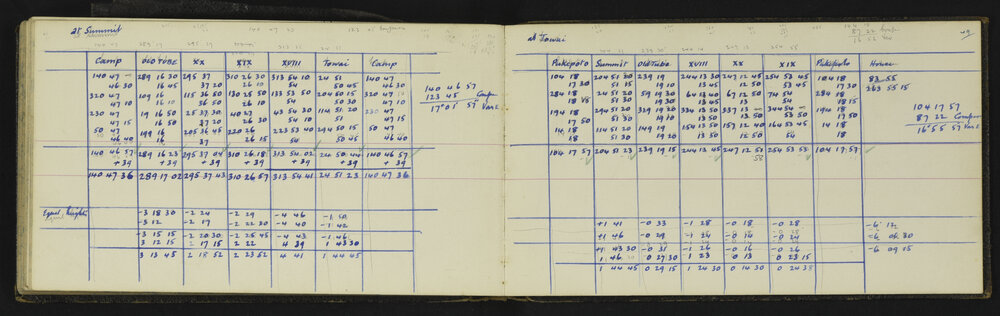 at Summit
Camp OLD TUBE XX XIX XVIII Towai Camp
140 47 — 289 16 30 295 37 310 26 30 313 54 10 24 51 140 47
46 30 16 45 37 20 26 10 54 50 45 46 30
320 47 109 16 115 36 50 130 25 50 133 53 50 204 50 15 320 47
47 10 16 10 36 50 26 10 54 50 30 47 10
230 47 19 16 50 25 37 30 40 26 43 54 30 114 51 20 230 47
47 15 16 50 37 20 26 30 54 10 51 47
50 47 199 16 205 36 45 220 26 223 53 40 294 50 15 50 47
47 16 37 26 15 54 50 45 46 40
140 46 57 289 16 23 295 37 04 310 26 18 313 54 02 24 50 44 140 46 57
+39 +39 +39 +39 +39 +39 +39
140 47 36 289 17 02 295 37 43 310 26 57 313 54 41 24 51 23 140 47 36
140 46 57
123 45 Comp
17° 01 57 Var
Equal heights
-3 18 30 -2 24 -2 29 -4 46 -1 50
-3 12 -2 17 -2 22 30 -4 40 -1 42
-3 15 15 -2 20 30 -2 25 45 -4 43 -1 46
3 12 15 2 17 15 2 22 4 39 1 43 30
3 13 45 2 18 52 2 23 52 4 41 1 44 45
at Towai
49
Pukepoto Summit Old Tube XVIII XX XIX Pukepoto House
104 18 204 51 30 239 19 244 13 30 247 12 45 254 53 45 104 18 83 55
17 30 51 15 19 10 13 45 12 50 54 17 30 263 55 15
284 18 24 51 20 59 19 64 13 40 67 12 50 74 54 284 18
18 15 51 30 19 30 13 45 13 54 18 15
194 18 294 51 20 329 19 20 334 13 30 337 13 — 344 54 — 194 18
17 50 51 30 19 30 13 50 13 50 53 50 17 50
14 18 114 51 20 149 19 154 13 50 157 12 40 164 53 45 14 18
18 51 30 19 15 13 50 12 50 54 18
104 17 57 204 51 23 239 19 15 244 13 45 247 12 51 254 53 53 104 17 57
53
104 17 57
87 22 Comp
16° 55 57 Var
+1 41 -0 33 -1 28 -0 18 -0 28 -6 12
+1 46 -0 29 -1 24 -0 14 -0 24 -6 06 30
+1 43 30 -0 31 -1 26 -0 16 -0 26 -6 09 15
1 46 0 27 30 1 23 0 13 0 23 15
1 44 45 0 29 15 1 24 30 0 14 30 0 24 38